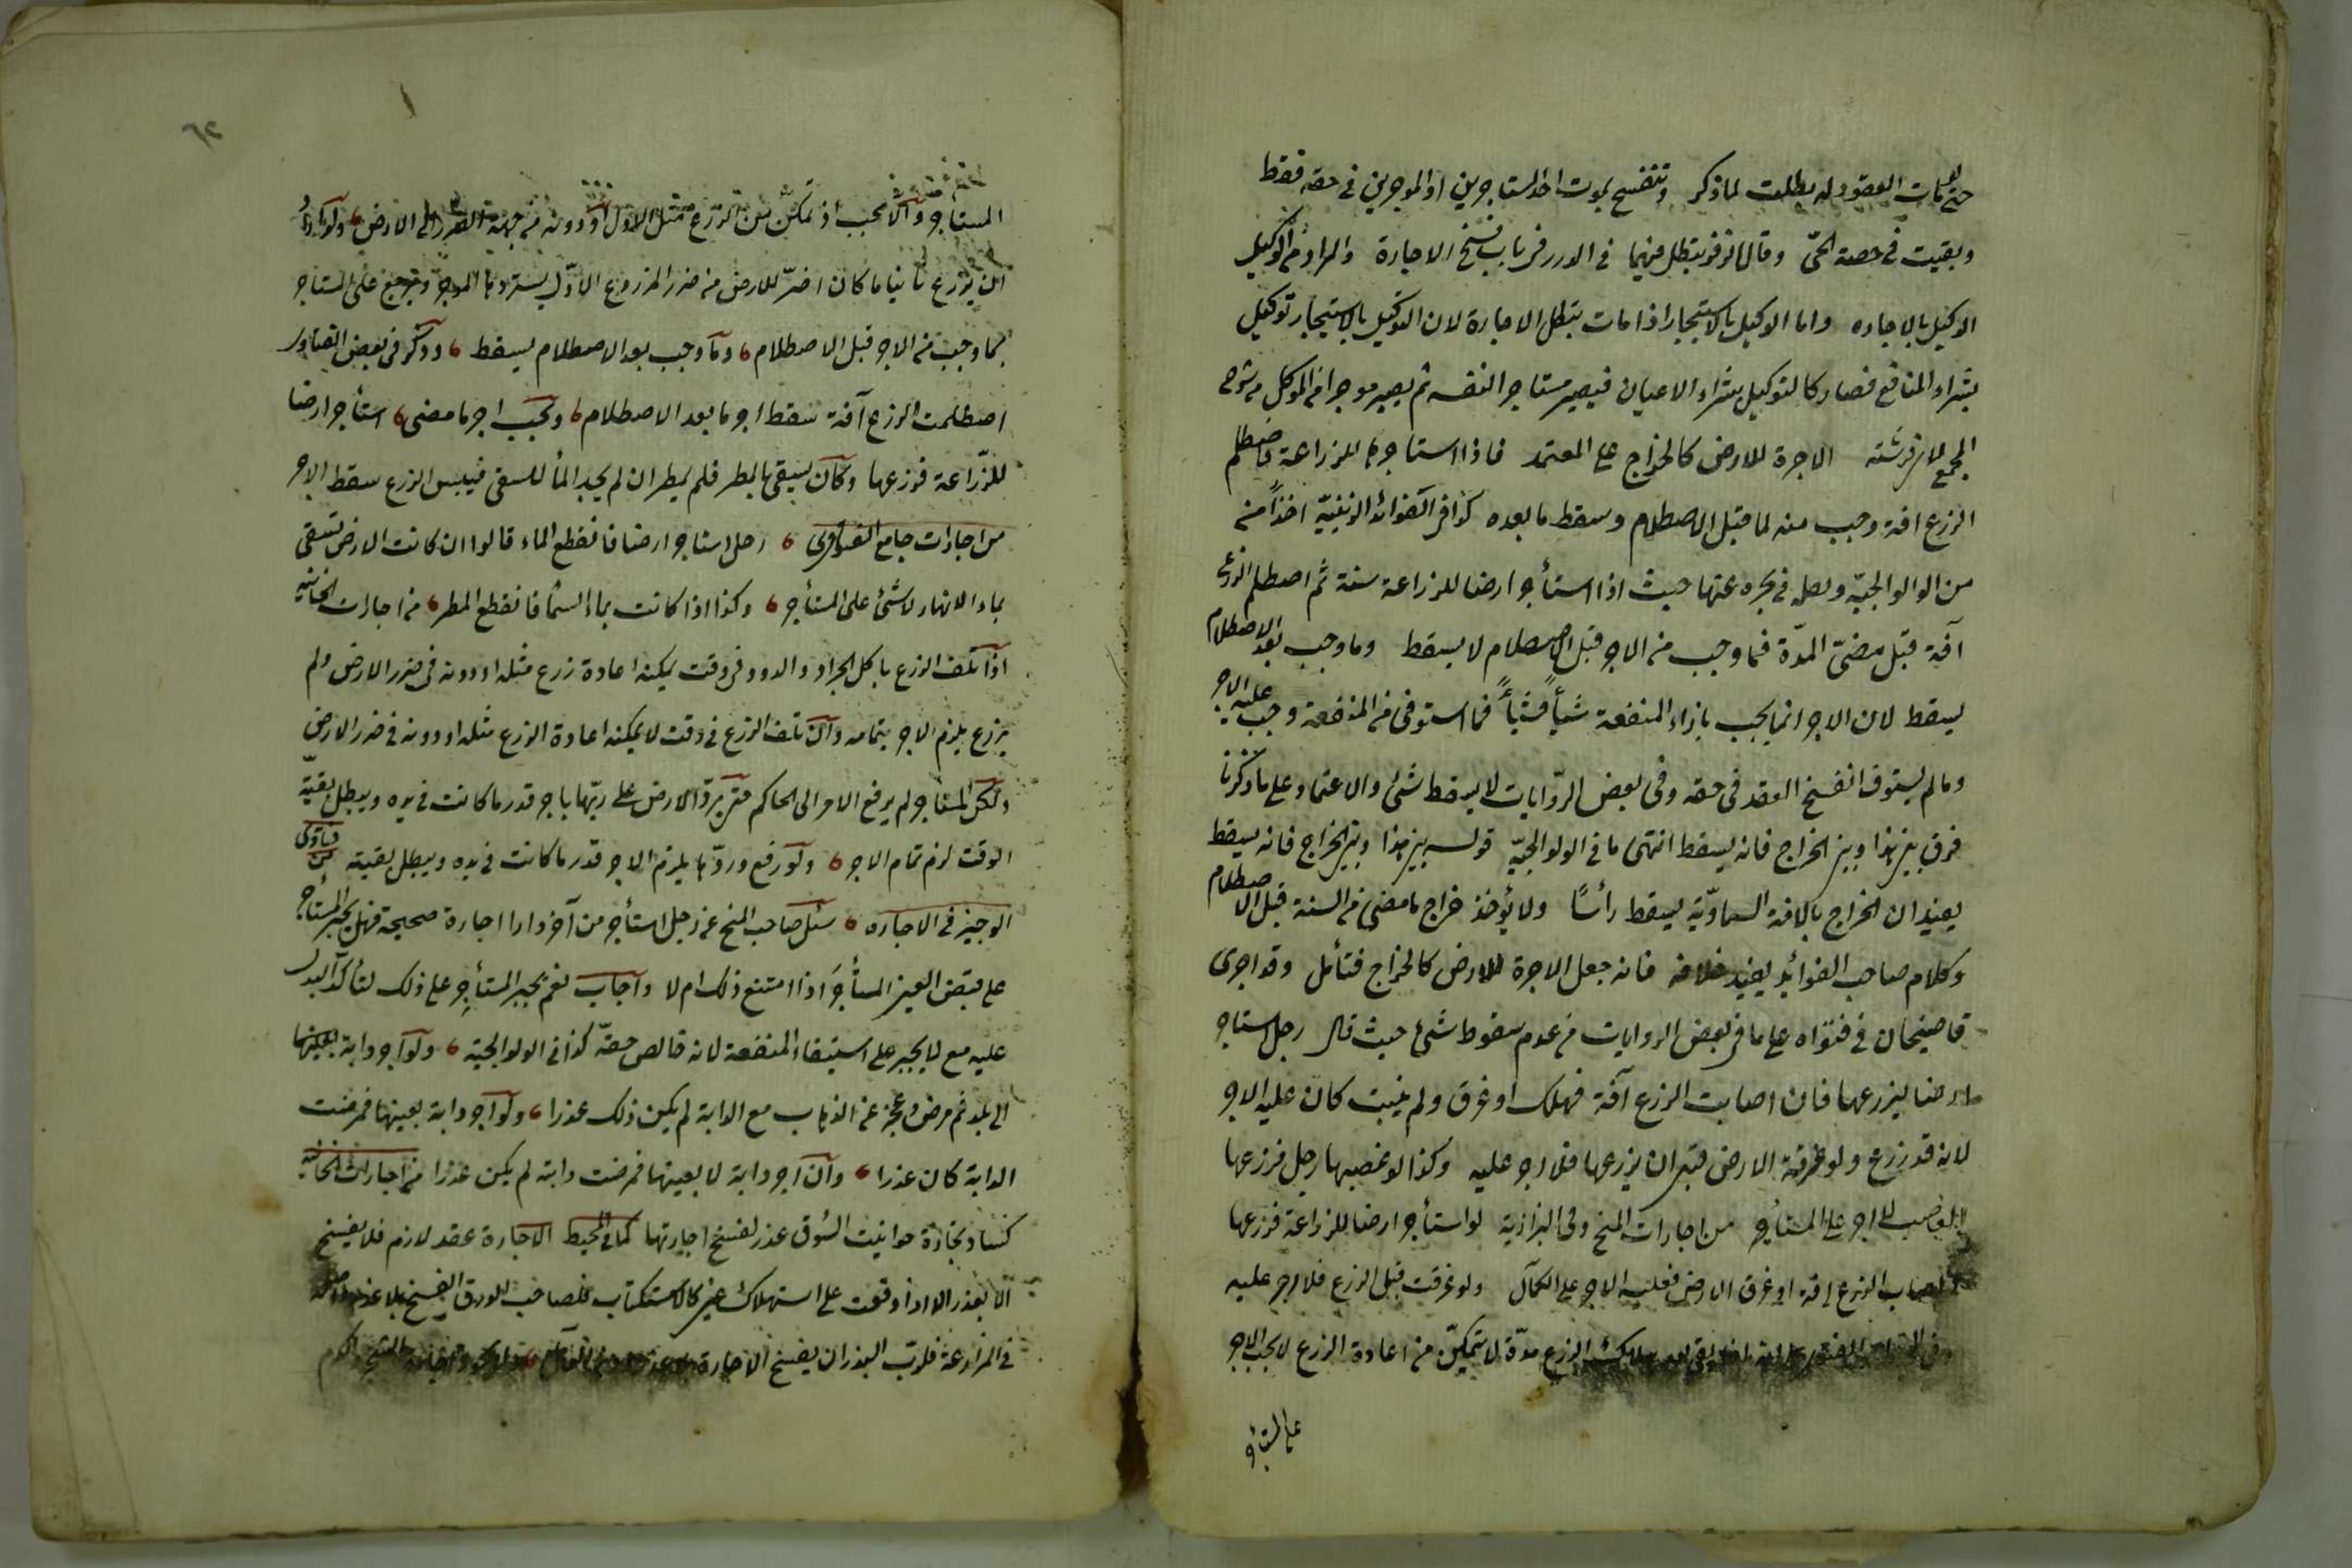 حتى لو مات المعقود له بطلت لما ذكر وتنفسخ بموت احد المستاجرين او الموجرين في حقه فقط
وبقيت في حصة الحىّ وقال زفر يبطل فيهما في الدرر في باب فسخ الاجارة والمراد من الوكيل
الوكيل بالاجاره واما الوكيل بالاستيجار اذا مات يبطل الاجارة لان التوكيل بالاستيجار توكيل
بشراء المنافع فصار كالتوكيل بشراء الاعيان فيصير مستاجرا لنفسه ثم يصير موجرا من الموكل من شرح
المجمع لابن فرشته الاجرة للارض كالخراج على المعتمد فاذا استاجرها للزراعة فاصطلم
الزرع افة وجب منه لما قبل الاصطلام وسقط ما بعده كذا في الفوائد الزينيّة اخذاً من
من الوالوالجيّة ولعله في بحره عنها حيث اذا استأجر ارضا للزراعة سنة ثم اصطلم الزرع
آفة قبل مضىّ المدّة فما وجب من الاجر قبل الاصطلام لا يسقط وما وجب بعد الاصطلام
يسقط لان الاجر انما يجب بازاء المنفعة شيأً فشيأً فما استوفى من المنفعة وجب عليه الاجر
وما لم يستوف انفسخ العقد في حقه وفى بعض الرّوايات لا يسقط شئ والاعتماد على ما ذكرنا
فرق بين هذا وبين الخراج فانه يسقط انتهى ما فى الولوالجيّه قوله بين هذا وبين الخراج فانه يسقط
يعنى ان الخراج بالافة السماويّة يسقط رأسًا ولا يؤخذ خراج ما مضى من السنة قبل الاصطلام
وكلام صاحب الفوائد يفيد خلافه فانه جعل الاجرة للارض كالخراج فتأمل وقد اجرى
قاضيخان في فتواه على ما في بعض الروايات من عدم سقوط شئ حيث قال رجل استاجر
ارضا ليزرعها فان اصابت الزرع آفة فهلك او غرق ولم ينبت كان عليه الاجر
لانه قد زرع ولو غرقت الارض قبل ان يزرعها فلا اجر عليه وكذا لو غصبها رجل فزرعها
الغاصب لا اجر على المستأجر من اجارات المنح وفى البزازية لو استأجر ارضا للزراعة فزرعها
اصاب الزرع افة او غرق الارض فعليه الاجر على الكمال ولو غرقت قبل الزرع فلا اجر عليه
بعد هلاك الزرع مدّة لا يتمكّن من اعادة الزرع لا يجب الاجر
على المستأجر
٦٢
المستأجر والا يجب اذ تمكن من الزرع مثل الاول او دونه من جهة الضرر الى الارض ولو اراد
ان يزرع ثانيا ما كان اضرّ للارض من ضرر المزروع الاوّل يستردها الموجر ويرجع على المستاجر
بما وجب من الاجر قبل الاصطلام وما وجب بعد الاصطلام يسقط وذكر في بعض الفتاوى
اصطلمت الزرع آفة سقط اجر ما بعد الاصطلام ويجب اجر ما مضى استأجر ارضا
للزّراعة فزرعها وكان يسقى بالمطر فلم يمطر ان لم يجد الماء للسقى فيبس الزرع سقط الاجر
من اجارات جامع الفتاوى رجل استاجر ارضا فانقطع الماء قالوا ان كانت الارض تسقى
بماء الانهار لا شئ على المستأجر وكذا اذا كانت بماء السماء فانقطع المطر من اجارات الخانيه
اذا تلف الزرع باكل الجراد والدود في وقت يمكنه اعادة زرع مثله او دونه في ضرر الارض ولم
يزرع يلزم الاجر بتمامه وان تلف الزرع في وقت لا يمكنه اعادة الزرع مثله او دونه في ضرر الارض
ولكن المستاجر لم يرفع الامر الى الحاكم حتى يردّ الارض على ربّها باجر قدر ما كانت في يده ويبطل بقيّة
الوقت لزم تمام الاجر ولو رفع وردّها يلزم الاجر قدر ما كانت في يده ويبطل بقيته من فتاوى
الوجيز في الاجاره سئل صاحب المنح عن رجل استأجر من آخر دارا اجارة صحيحة فهل يجبر المستأجر
على قبض العين المستأجَر اذا امتنع ذلك ام لا واجاب نعم يجبر المستأجِر على ذلك لتأكد البدل
عليه مع لا يجبر على استيفاء المنفعة لانه خالص حقّه كذا في الولوالجيّه ولو آجر دابة بعينها
الى بلد ثم مرض وعجز عن الذهاب مع الدابة لم يكن ذلك عذرا ولو آجر دابة بعينها فمرضت
الدابة كان عذرا وان آجر دابة لا بعينها فمرضت دابته لم يكن عذرا من اجارات الخانيه
كساد تجارة حوانيت السّوق عذر لفسخ اجارتها كما في المحيط الاجارة عقد لازم فلا يفسخ
الا بعذر الا اذا وقعت على استهلاك عين كالاستكتاب فلصاحب الورق الفسخ بلا عذر
في المزارعة فلرب البذر ان يفسخ الاجارة